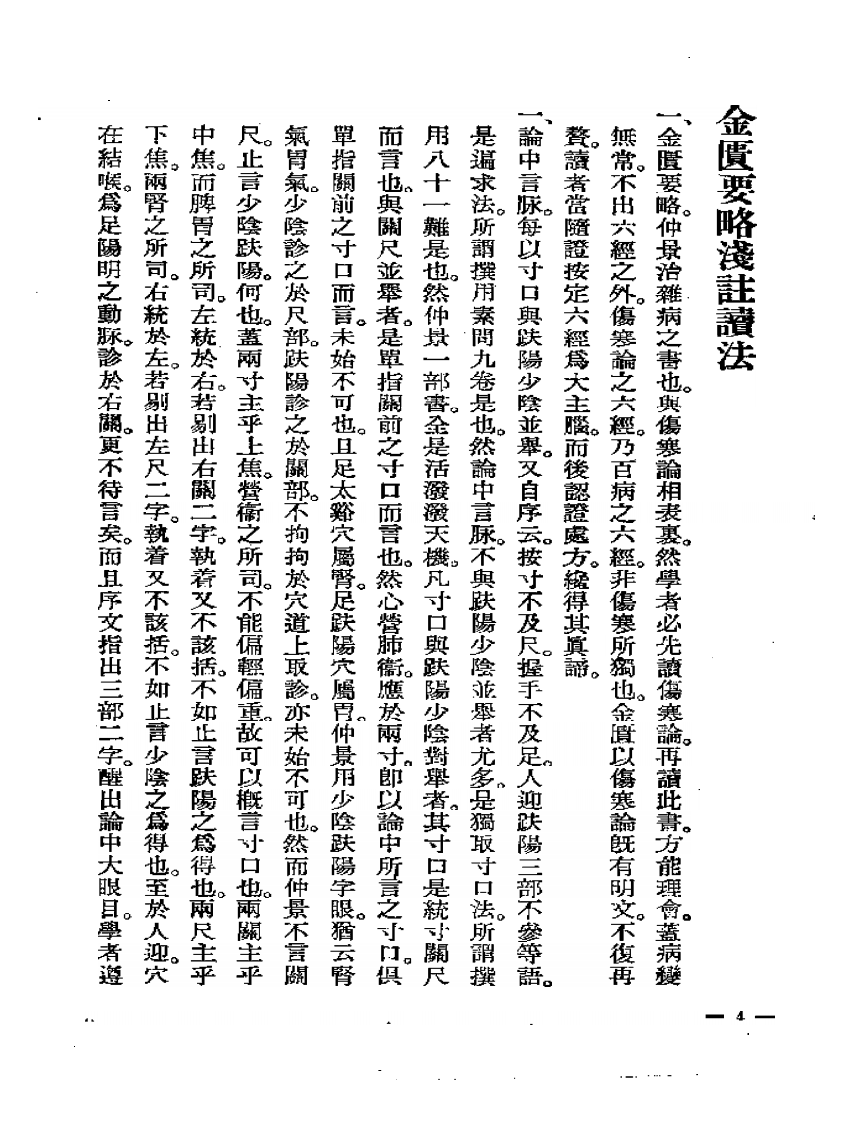 金匱要略淺註讀法
一、金匱要略。仲景治雜病之書也。與傷寒論相表裏。然學者必先讀傷寒論。再讀此書。方能理會。蓋病變
無常。不出六經之外。傷寒論之六經。乃百病之六經。非傷寒所獨也。金匱以傷寒論既有明文。不復再
贅。讀者當隨證按定六經爲大主腦。而後認證處方。纔得其眞諦。
一、論中言脉。每以寸口與趺陽少陰並舉。又自序云。按寸不及尺。握手不及足。人迎趺陽三部不參等語。
是遍求法。所謂撰用素問九卷是也。然論中言脉。不與趺陽少陰並舉者尤多。是獨取寸口法。所謂撰
用八十一難是也。然仲景一部書。全是活潑潑天機。凡寸口與趺陽少陰對舉者。其寸口是統寸關尺
而言也。與關尺並舉者。是單指關前之寸口而言也。然心營肺衞。應於兩寸。卽以論中所言之寸口。俱
單指關前之寸口而言。未始不可也。且足太谿穴屬腎。足趺陽穴屬胃。仲景用少陰趺陽字眼。猶云腎
氣胃氣。少陰診之於尺部。趺陽診之於關部。不拘拘於穴道上取診。亦未始不可也。然而仲景不言關
尺。止言少陰趺陽。何也。蓋兩寸主乎上焦。營衞之所司。不能偏輕偏重。故可以槪言寸口也。兩關主乎
中焦。而脾胃之所司。左統於右。若剔出右關二字。執着又不該括。不如止言趺陽之爲得也。兩尺主乎
下焦。兩腎之所司。右統於左。若剔出左尺二字。執着又不該括。不如止言少陰之爲得也。至於人迎。穴
在結喉。爲足陽明之動脉。診於右關。更不待言矣。而且序文指出三部二字。醒出論中大眼目。學者遵
— 4 —